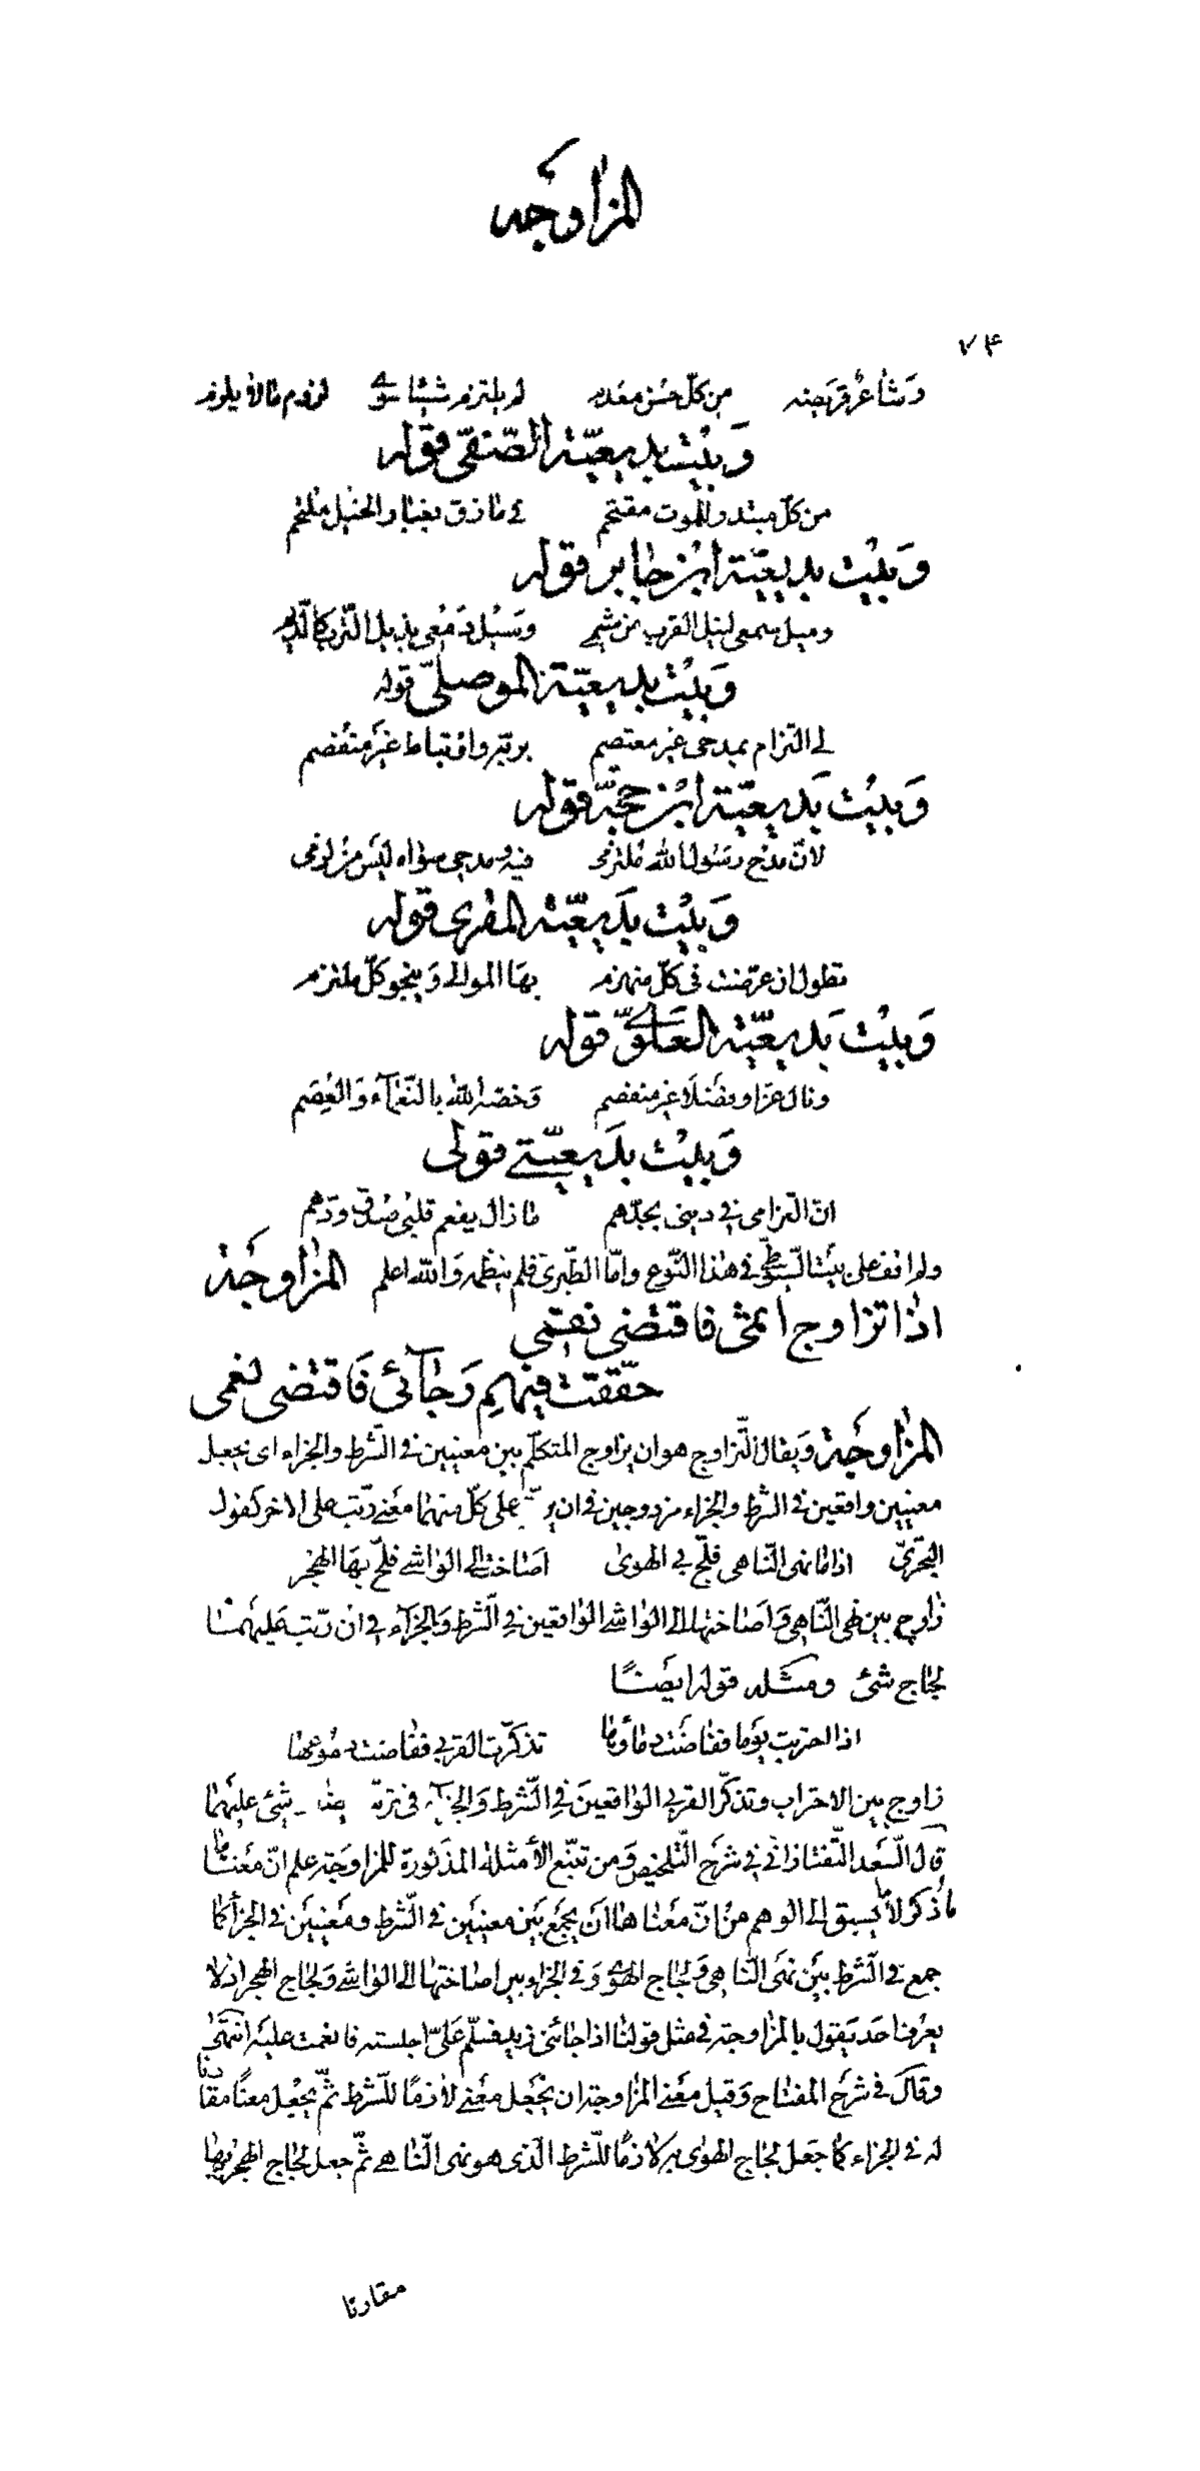 المزاوجه
٧۴
وشاعر قريحته من كلّ حسن معدله لم يلتزم شيئا سوى لزوم ما لا يلزم
وبيت بديعيّة الصّفيّ قوله
من كلّ مبتدر للموت مقتحم في مأزق بغبار الخيل ملتحم
وبيت بديعيّة ابن جابر قوله
وميل سمعي لنيل القرب من شيمي وسيل دمعي بذيل الترب كالدّيم
وبيت بديعيّة الموصلّي قوله
لي التزام بمدحي غير معتصم بربّه وارتباط غير منفصم
وبيت بديعيّة ابن حجّة قوله
لانّ مدح رسول الله ملتزمى فيه ومدحي سواه ليس من لزمى
وبيت بديعيّة المقري قوله
تطول ان عرّضت في كلّ منهزم بها الموالى وينجو كلّ ملتزم
وبيت بديعيّة العلوىّ قوله
ونال عزّا وفضلا غير منفصم وخصّه الله بالنّعمآء والعصم
وبيت بديعيّتي قولى
انّ التزامى في دينى بحبّهم ما زال يفعم قلبى صدق ودّهم
ولم اقف على بيت السّيوطىّ في هذا النّوع وامّا الطّبرىّ فلم ينظمه والله اعلم المزاوجة
اذا تزاوج اثمى فاقتضى نقمي
حقّقت فيهم رجآئى فاقتضى نعمى
المزاوجة ويقال التّزاوج هو ان يزاوج المتكلّم بين معنيين في الشّرط والجزاء اى يجعل
معنيين واقعين في الشّرط والجزاء مزدوجين في ان يرتّب على كلّ منهما معنى رتّب على الاخر كقول
البحترىّ اذا ما نهى النّاهى فلجّ بي الهوى اصاخت الى الواشي فلجّ بها الهجر
زاوج بين نهى النّاهى واصاختها الى الواشي الواقعين في الشّرط والجزآء في ان رتّب عليهما
لجاج شئ ومثله قوله ايضا
اذا احتربت يوما ففاضت دماؤها تذكّرت القربى ففاضت دموعها
زاوج بين الاحتراب وتذكّر القربى الواقعين في الشّرط والجزآء في ترتّب فيضان شئ عليهما
قال السّعد التّفتازانى في شرح التّلخيص ومن تتبّع الأمثلة المذكورة للمزاوجة علم انّ معناها
ما ذكر لا ما يسبق الى الوهم من انّ معناها ان يجمع بين معنيين في الشّرط ومعنيين في الجزآ كما
جمع في الشّرط بين نهى النّاهي ولجاج الهوى وفي الجزاء بين اصاختها الى الواشي ولجاج الهجر اذ لا
يعرف احد يقول بالمزاوجة في مثل قولنا اذا جائنى زيد فسلّم علىّ اجلسته فانعمت عليه انتهى
وقال في شرح المفتاح وقيل معنى المزاوجة ان يجعل معنى لازما للشّرط ثمّ يجعل معنا مقارنا
له في الجزاء كما جعل لجاج الهوى به لازما للشّرط الّذى هو نهى النّاهى ثمّ جعل لجاج الهجر بها
مقارنا